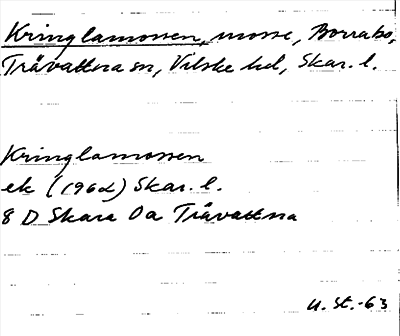 Kringlamossen, mosse, Borrabo,
Trävattna sn, Vilske hd, Skar. l.
Kringlamossen
ek (1962) Skar. l.
8 D Skara 0a Trävattna
U. St. -63